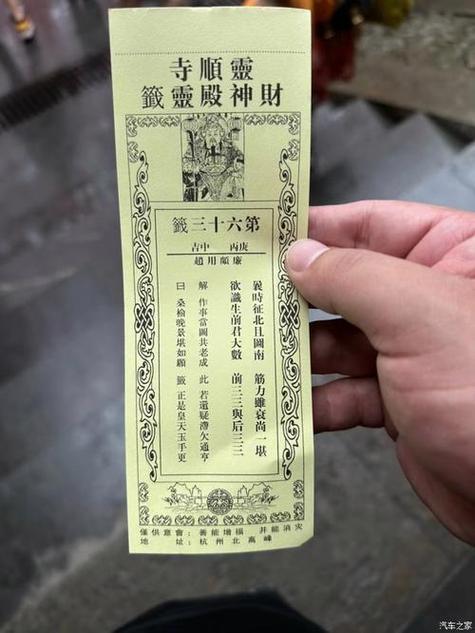 靈順寺
財神殿靈籤
第六十三籤
庚丙 中吉
廉頗用趙
曩時征北且圖南 筋力雖衰尚一堪
欲識生前君大數 前三三與后三三
解 作事當圖共老成 此 若還疑滯欠通亨
曰 桑榆晚景堪如願 籤 正是皇天玉手更
僅供意會:善能增福 并能消灾
地 址:杭州北高峰
汽车之家